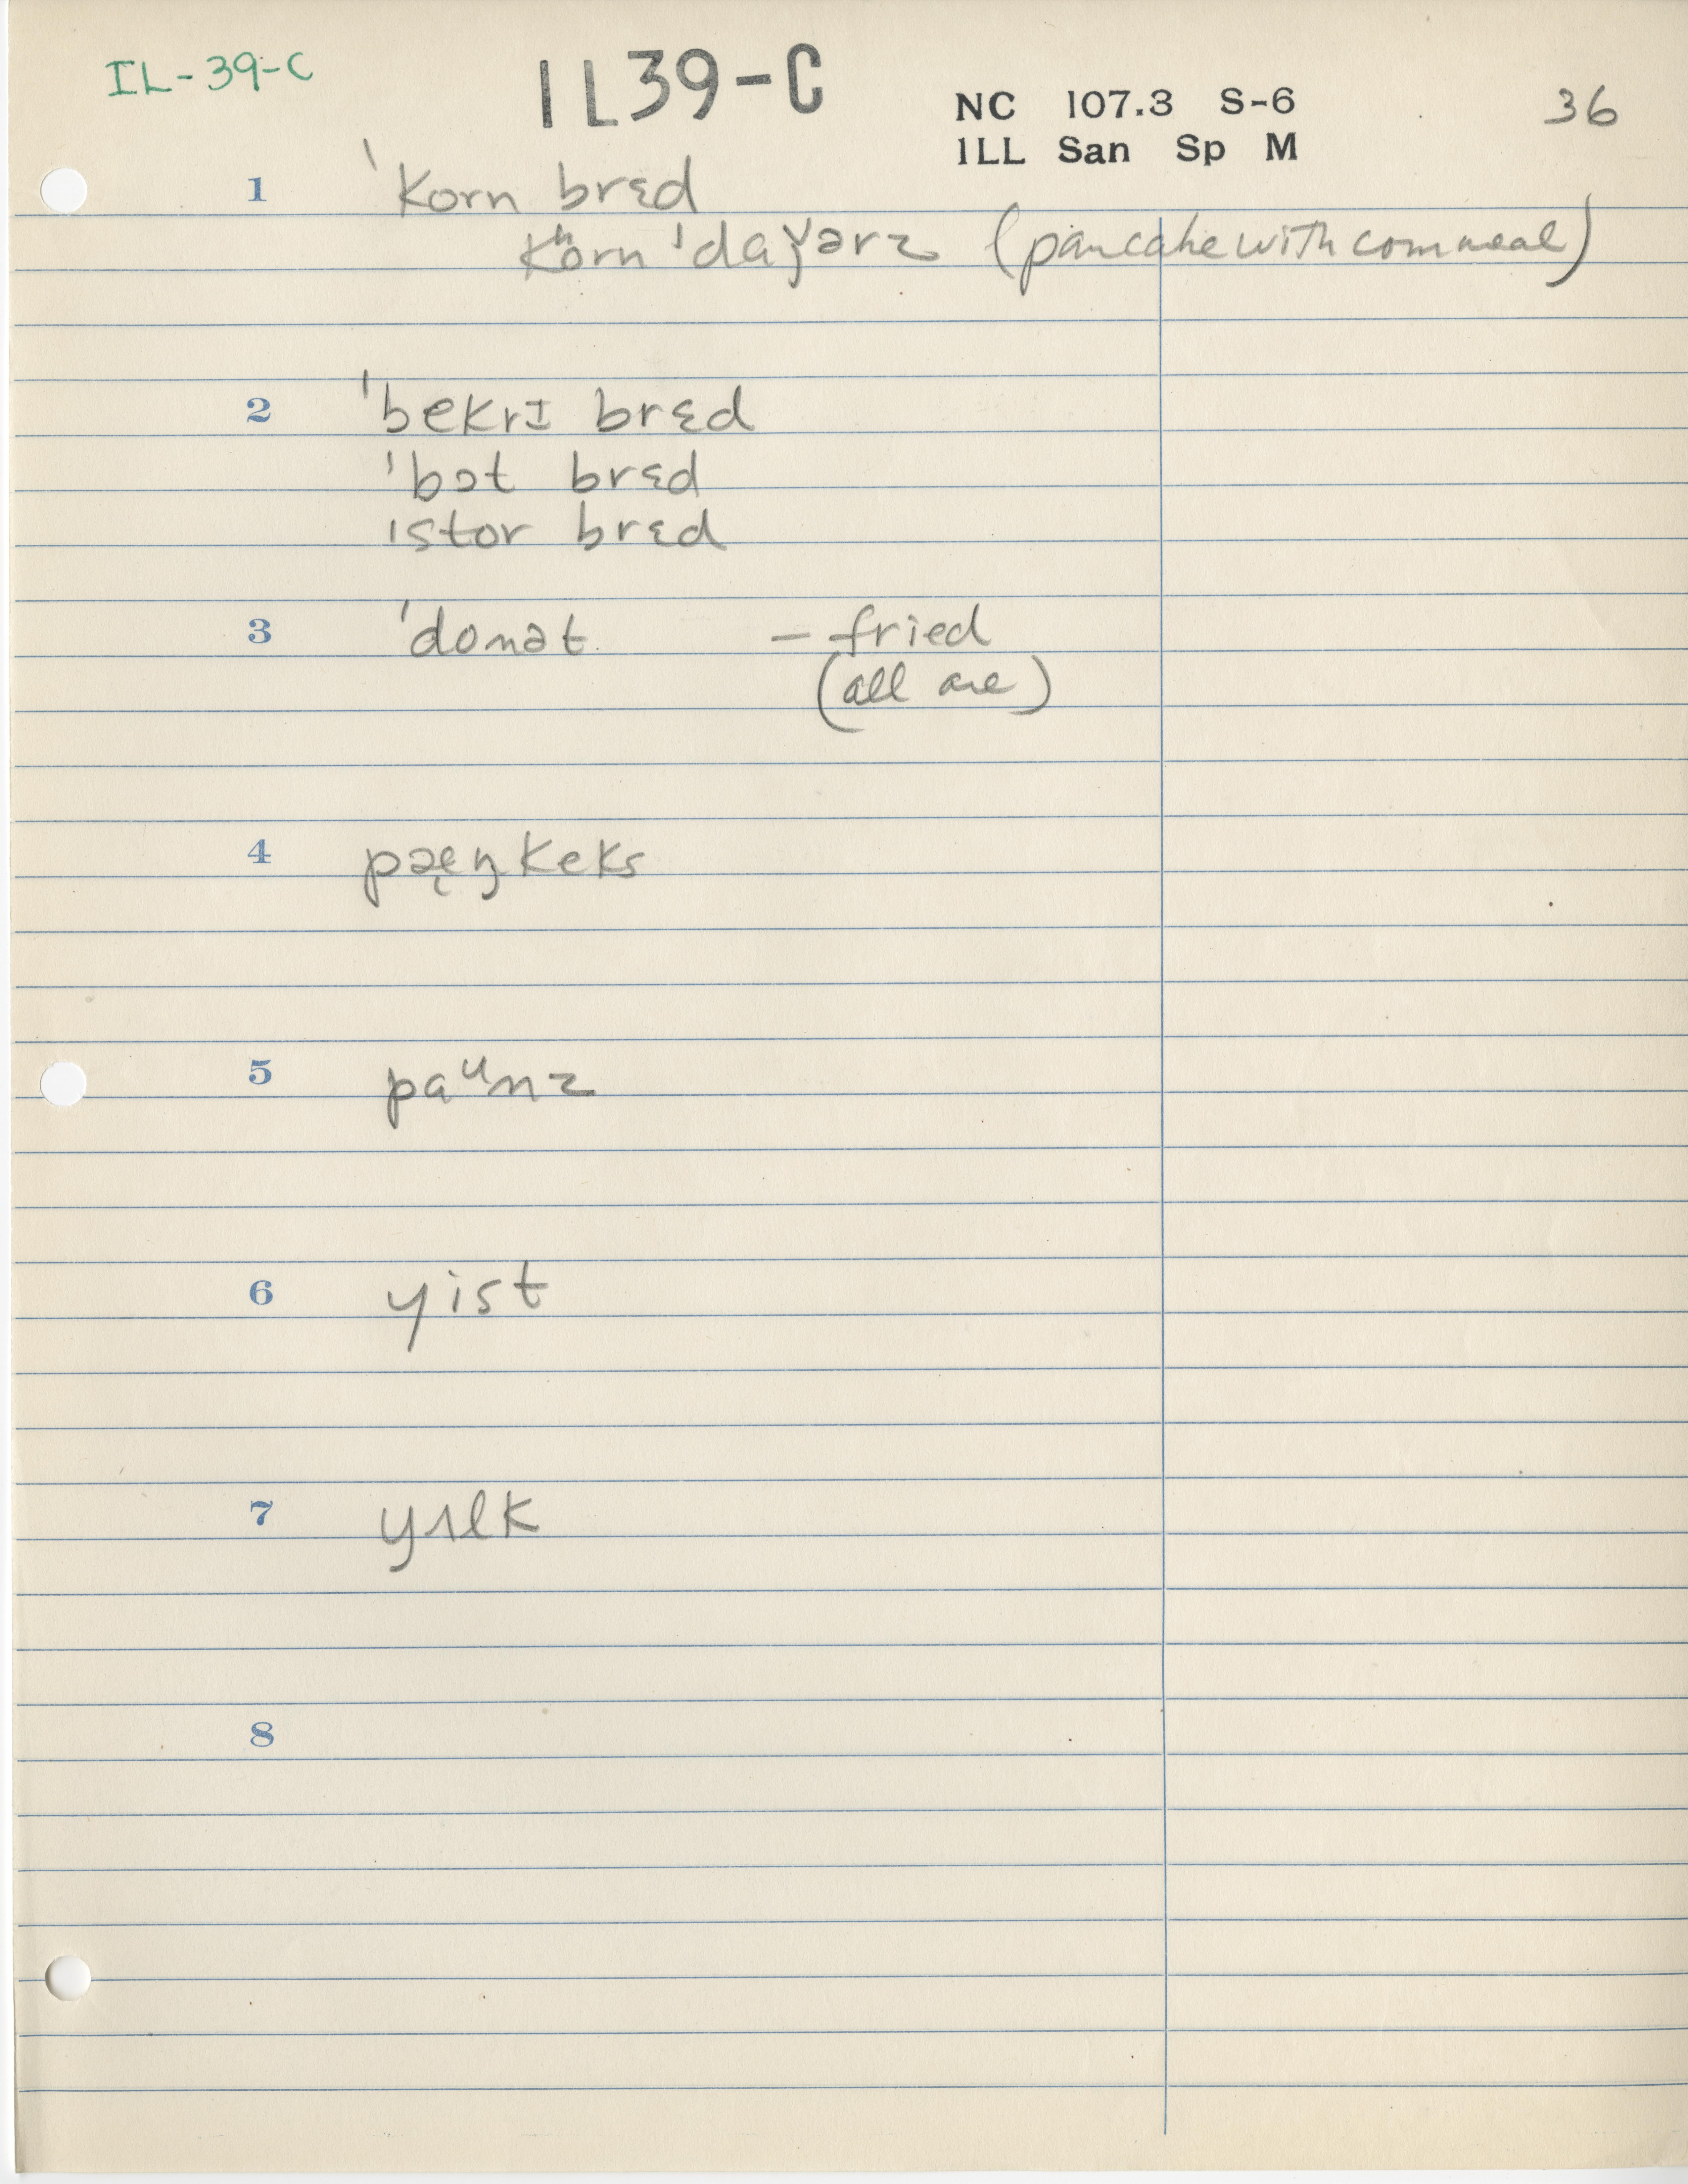 IL-39-C
IL39-C
NC 107.3 S-6
ILL San Sp M
36
1 ˈkorn brɛd
(pancake with cornmeal)
2 ˈbekrɪ brɛd
ˈbɔt brɛd
ˈstor brɛd
3 ˈdonət – fried
(all are)
4 pæ̨ŋkeks
5 paᵘnz
6 yist
7 yɛlk
8